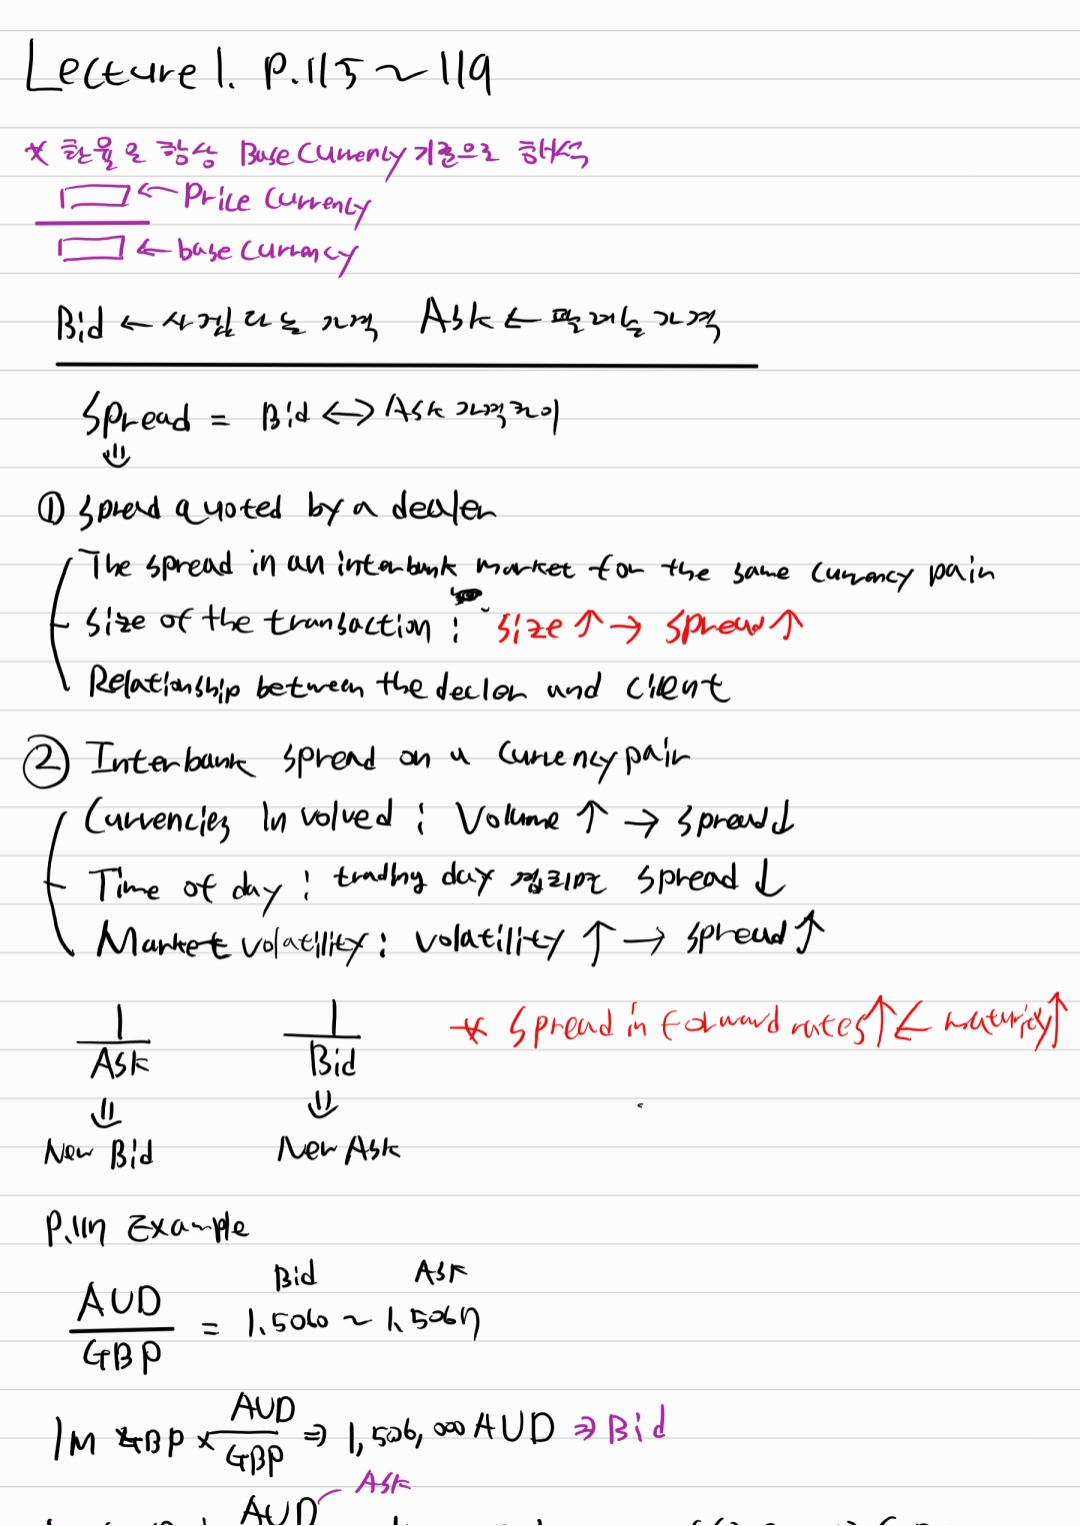 Lecture 1. P.115 ~ 119
* 환율은 항상 Base Currency 기준으로 해석
← Price Currency
← base Currency
Bid ← 사겠다는 가격 Ask ← 팔려는 가격
Spread = Bid ↔ Ask 가격차이
⇓
① Spread quoted by a dealer
The spread in an interbank market for the same currency pain
Size of the transaction : Size ↑ → Spread ↑
Relationship between the decler and client
② Interbank spread on a currency pair
Currencies Involved : Volume ↑ → Spread ↓
Time of day : trading day 겹치면 spread ↓
Market volatility : volatility ↑ → spread ↑
1/Ask 1/Bid * Spread in forward rates ↑ ← maturity ↑
⇓ ⇓
New Bid New Ask
P.117 Example
Bid Ask
AUD/GBP = 1.5060 ~ 1.5067
1M GBP × AUD/GBP ⇒ 1,506,000 AUD ⇒ Bid
Ask
AUD